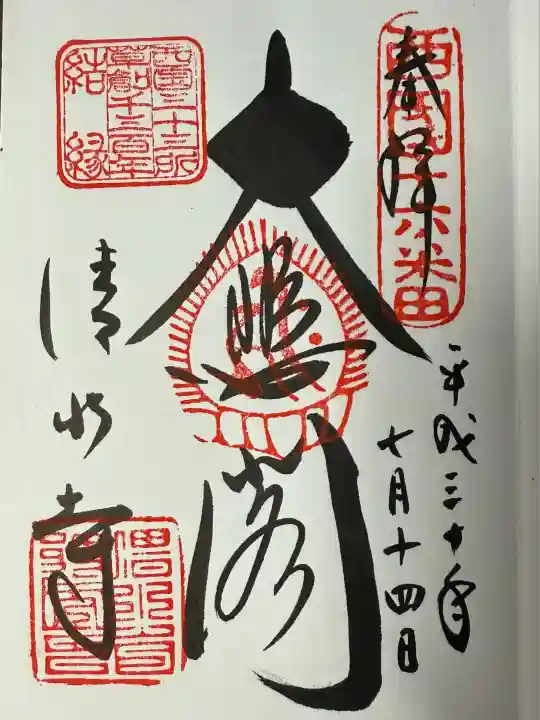 奉拝
西国十六番
平成三十年
七月十四日
大悲閣
西国三十三所
草創千三百年
結縁
清水寺